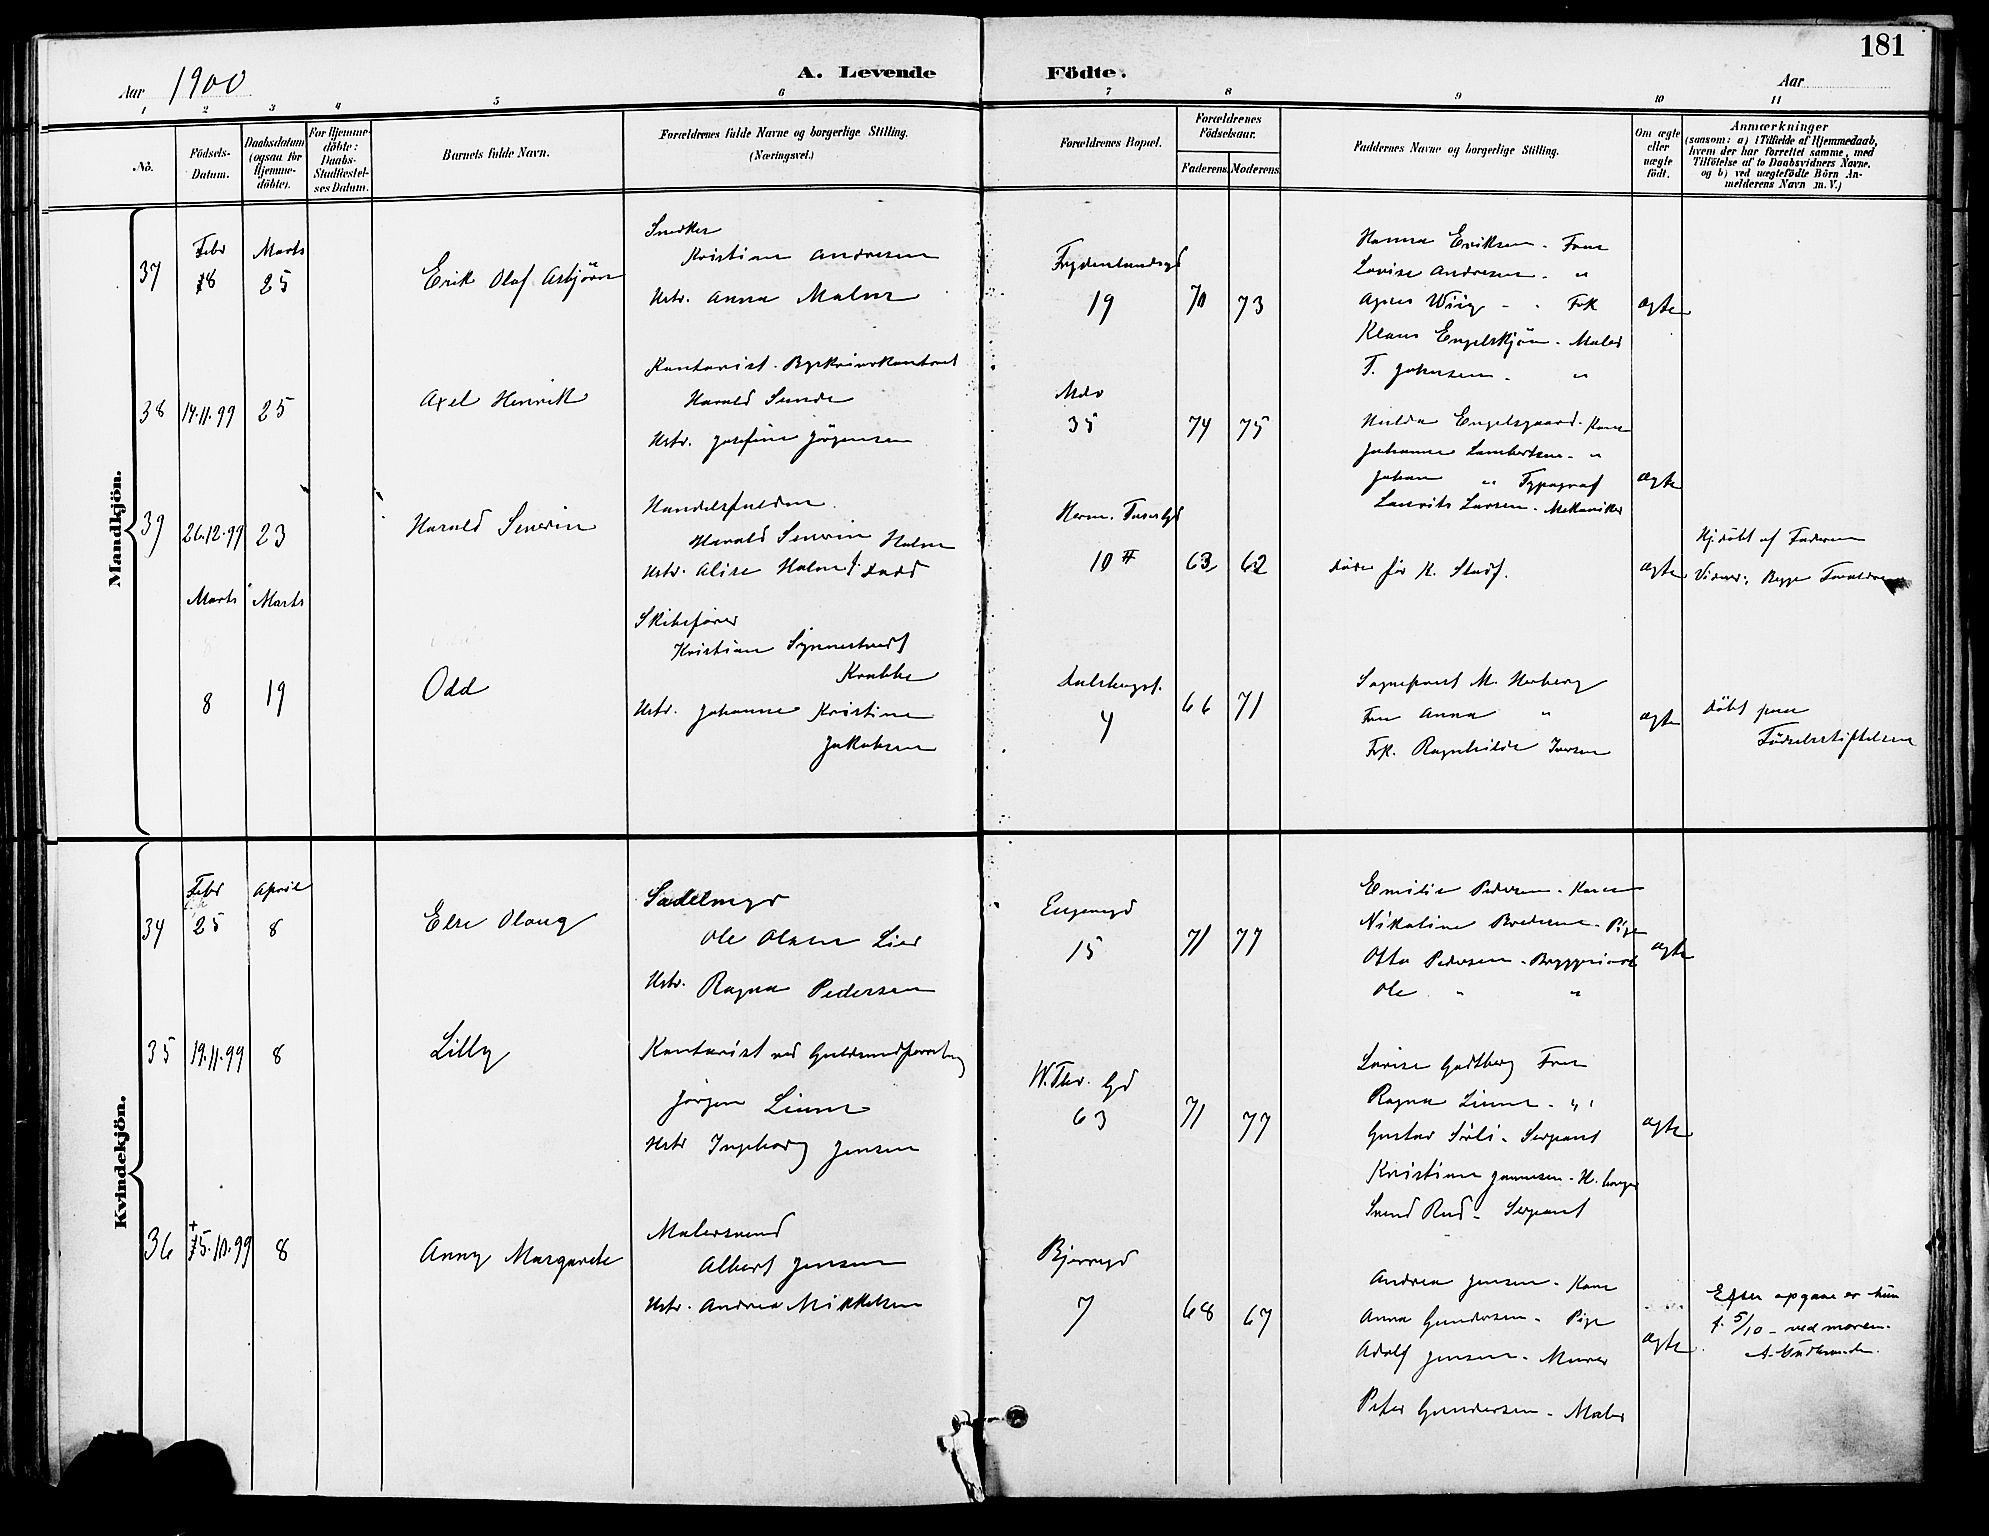 181
Aar 1900
A. Levende Födte.
Aar
1 2 3 4 5 6 7 8 9 10 11
No.
Födsels-Datum.
Daabsdatum (ogsaa for Hjemmedöbte).
For Hjemmedöbte: Daabs-Stadfæstelses Datum.
Barnets fulde Navn.
Forældrenes fulde Navne og borgerlige Stilling. (Næringsvei.)
Forældrenes Bopæl.
Forældrenes Födselsaar.
Faderens Moderens
Faddernes Navne og borgerlige Stilling.
Om ægte eller uægte födt.
Anmærkninger
(saasom: a) i Tilfælde af Hjemmedaab, hvem der har forrettet samme, med Tilföielse af to Daabsvidners Navne. og b) ved uægtefödte Börn Anmelderens Navn m. V.)
Mandkjön.
37
Febr
18
Marts
25
Erik Olaf Asbjörn
Snedker
Kristian Andresen
Hstr. Anna Malm
Frydenlundsgd
19
70
73
Hanna Eriksen - Frue
Lovise Andresen - "
Agnes Wiig - Frk
Klaus Engelskjön - Maler
T. Johnsen - "
ægte
38
14.11.99
25
Axel Henrik
Kontorist
Harald Sunde
Hstr. Josefine Jörgensen
35
74
75
Hulda Engelsgaard - Kone
Johanne Lambertsen - "
Johan " Typograf
Lauritz Larsen - Mekaniker
ægte
39
26.12.99
23
Harald Severin
Harald Severin Holm
Hstr. Alise Holm f. Dodd
10 II
63
62
döde för K. Stadf.
ægte
Hj. döbt af Faderen
Vidner: Begge Forældrene
Marts
8
Marts
19
Odd
Skibsförer
Kristian Synnestvedt
Krabbe
Hstr. Johanne Kristine
Jakobsen
Dalsbergst.
4
66
71
Sogneprest M. Herberg
Frue Anna "
Frk. Ragnhilde Iversen
ægte
Döbt paa
Födselsstiftelsen
Kvindekjön.
34
Febr
25
April
8
Else Olaug
Sadelmgr
Ole Olsen Lier
Hstr. Ragna Pedersen
Engengd
15
71
77
Emilie Pedersen - Kone
Nikoline Bredesen - Pige
Otto Pedersen - Bryggeriarb
Ole " "
ægte
35
19.11.99
8
Lilly
Kontorist ved
Jörgen Linne
Hstr Ingeborg Jensen
W. Thr. Gd
63
71
77
Lovise Godtberg Frue
Ragna Linne - "
Gustav Sörli - Sergeant
Kristian
Svend Rud - Sergeant
ægte
36
+
15.10.99
8
Anny Margarete
Malersvend
Albert Jensen
Hstr. Andrea Mikkelsen
Bjerregd
7
68
67
Andrea Jensen - Kone
Anna Gundersen - Pige
Adolf Jensen - Murer
Peter Gundersen - Maler
ægte
Efter opgave er hun
f. 5/10 - ved moren.